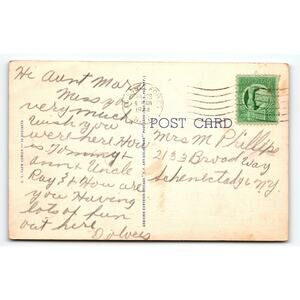 Hi Aunt Mary
Miss you
very much
Wish you
were here How
is Tommy +
ann + Uncle
Ray? + How are
you Having
lots of fun
out here
Dolores
POST CARD
Mrs M Phillips
2133 Broadway
Schenectady 6 N.Y.